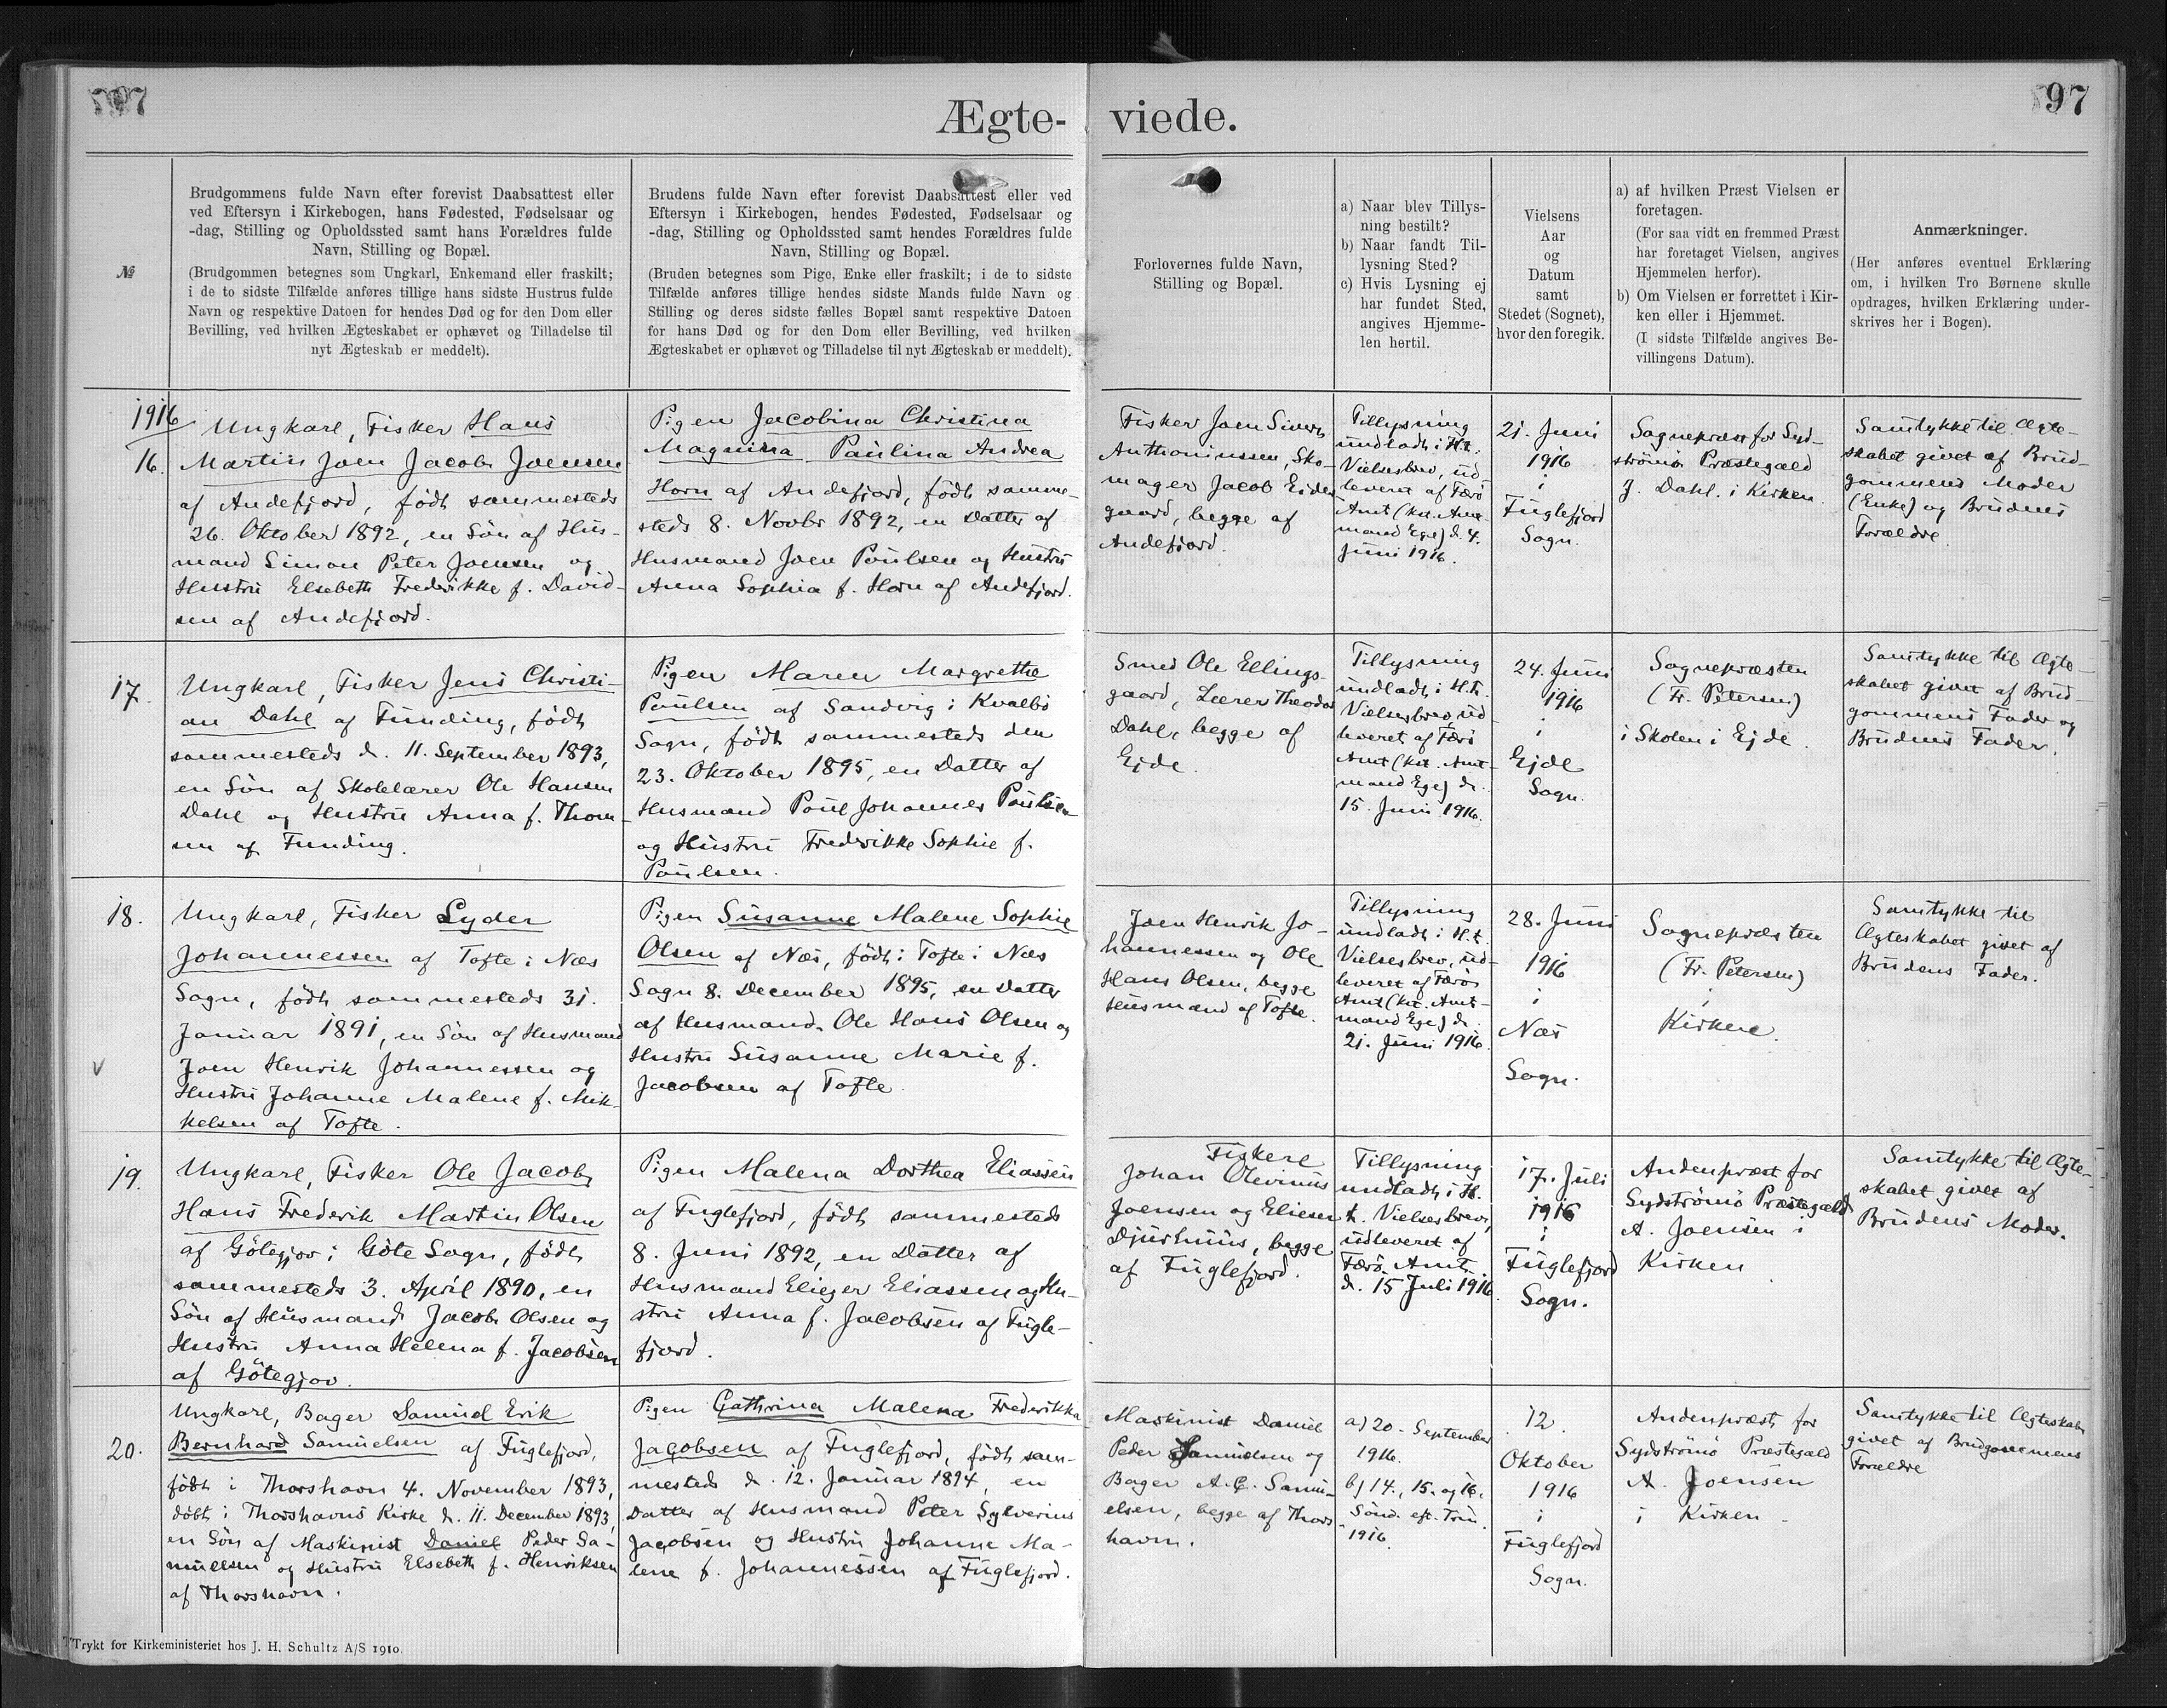 97
Ægte-
viede.
97
№
Brudgommens fulde Navn efter forevist Daabsattest eller
ved Eftersyn i Kirkebogen, hans Fødested, Fødselsaar og
-dag, Stilling og Opholdssted samt hans Forældres fulde
Navn, Stilling og Bopæl.
(Brudgommen betegnes som Ungkarl, Enkemand eller fraskilt;
i de to sidste Tilfælde anføres tillige hans sidste Hustrus fulde
Navn og respektive Datoen for hendes Død og for den Dom eller
Bevilling, ved hvilken Ægteskabet er ophævet og Tilladelse til
nyt Ægteskab er meddelt).
Brudens fulde Navn efter forevist Daabsattest eller ved
Eftersyn i Kirkebogen, hendes Fødested, Fødselsaar og
-dag, Stilling og Opholdssted samt hendes Forældres fulde
Navn, Stilling og Bopæl.
(Bruden betegnes som Pige, Enke eller fraskilt; i de to sidste
Tilfælde anføres tillige hendes sidste Mands fulde Navn og
Stilling og deres sidste fælles Bopæl samt respektive Datoen
for hans Død og for den Dom eller Bevilling, ved hvilken
Ægteskabet er ophævet og Tilladelse til nyt Ægteskab er meddelt).
Forlovernes fulde Navn,
Stilling og Bopæl.
a) Naar blev Tillys-
ning bestilt?
b) Naar fandt Til-
lysning Sted?
c) Hvis Lysning ej
har fundet Sted,
angives Hjemme-
len hertil.
Vielsens
Aar
og
Datum
samt
Stedet (Sognet),
hvor den foregik.
a) af hvilken Præst Vielsen er
foretagen.
(For saa vidt en fremmed Præst
har foretaget Vielsen, angives
Hjemmelen herfor).
b) Om Vielsen er forrettet i Kir-
ken eller i Hjemmet.
(I sidste Tilfælde angives Be-
villingens Datum).
Anmærkninger.
(Her anføres eventuel Erklæring
om, i hvilken Tro Børnene skulle
opdrages, hvilken Erklæring under-
skrives her i Bogen).
1916
16.
Ungkarl, Fisker Hans
Martin Joen Jacob Joensen
af Andefjord, født sammesteds
26. Oktober 1892, en Søn af Hus-
mand Simon Peter Joensen og
Hustru Elsebeth Frederikke f. David-
sen af Andefjord.
Pigen Jacobina Christina
Magnina Paulina Andrea
Horn af Andefjord, født samme-
steds 8. Novbr 1892, en Datter af
Husmand Joen Poulsen og Hustru
Anna Sophia f. Horn af Andefjord.
Fisker Joen Simon
Anthoniussen, Sko-
mager Jacob Eides
gaard, begge af
Andefjord.
Tillysning
undladt i H.t.
Vielsesbrev, ud
leveret af Færø
Amt (kst. Amt-
mand Ege) d. 4.
Juni 1916.
21. Juni
1916
i
Fuglefjord
Sogn.
Sognepræst for Syd-
strømø Præstegæld
J. Dahl. i Kirken.
Samtykke til Ægte-
skabet givet af Brud-
gommens Moder
(Enke) og Brudens
Forældre.
17.
Ungkarl, Fisker Jens Christi-
an Dahl af Funding, født
sammesteds d. 11. September 1893,
en Søn af Skolelærer Ole Hansen
Dahl og Hustru Anna f. Thom-
sen af Funding.
Pigen Maren Margrethe
Poulsen af Sandvig i Kvalbø
Sogn, født sammesteds den
23. Oktober 1895, en Datter af
Husmand Poul Johannes Poulsen
og Hustru Frederikke Sophie f.
Poulsen.
Smed Ole Ellings-
gaard, Lærer Theodor
Dahl, begge af
Ejde.
Tillysning
undladt, i H.t.
Vielsesbrev, ud-
leveret af Færø
Amt (kst. Amt-
mand Ege) d.
15. Juni 1916.
24. Juni
1916
i
Ejde
Sogn.
Sognepræsten
(Fr. Petersen)
i Skolen i Ejde.
Samtykke til Ægte-
skabet givet af Brud-
gommens Fader og
Brudens Fader.
18.
Ungkarl, Fisker Lyder
Johannessen af Tofte i Næs
Sogn, født sammesteds 31.
Januar 1891, en Søn af Husmand
Joen Henrik Johannessen og
Hustru Johanne Malene f. Mik-
kelsen af Tofte.
Pigen Susanne Malene Sophie
Olsen af Næs, født i Tofte i Næs
Sogn 8. December 1895, en Datter
af Husmand Ole Hans Olsen og
Hustru Susanne Marie f.
Jacobsen af Tofte.
Joen Henrik Jo-
hannessen og Ole
Hans Olsen, begge
Husmænd af Tofte.
Tillysning
undladt i H.t.
Vielsesbrev, ud-
leveret af Færø
Amt (kst. Amt-
mand Ege) d.
21. Juni 1916.
28. Juni
1916
i
Næs
Sogn.
Sognepræsten
(Fr. Petersen)
i
Kirken.
Samtykke til
Ægteskabet givet af
Brudens Fader.
19.
Ungkarl, Fisker Ole Jacob
Hans Frederik Martin Olsen
af Götegjov i Göte Sogn, født
sammesteds 3. April 1890, en
Søn af Husmand Jacob Olsen og
Hustru Anna Helena f. Jacobsen
af Götegjov.
Pigen Malena Dorthea Eliassen
af Fuglefjord, født sammesteds
8. Juni 1892, en Datter af
Husmand Eliezer Eliassen og Hu-
stru Anna f. Jacobsen af Fugle-
fjord.
Fiskere
Johan Olevinus
Joensen og Eliesen
Djurhuus, begge
af Fuglefjord.
Tillysning
undladt, i H.
t. Vielsesbrev,
udleveret af
Færø Amt
d. 15 Juli 1916.
17. Juli
1916
i
Fuglefjord
Sogn.
Andenpræst for
Sydstrømø Præstegæld
A. Joensen i
Kirken
Samtykke til Ægte-
skabet givet af
Brudens Moder.
20.
Ungkarl, Bager Samuel Erik
Bernhard Samuelsen af Fuglefjord,
født i Thorshavn 4. November 1893,
døbt i Thorshavns Kirke d. 11. December 1893,
en Søn af Maskinist Daniel Peder Sa-
muelsen og Hustru Elsebeth f. Henriksen
af Thorshavn.
Pigen Cathrina Malena Frederikka
Jacobsen af Fuglefjord, født sam-
mesteds d. 12. Januar 1894, en
Datter af Husmand Peter Sylverius
Jacobsen og Hustru Johanne Ma-
lene f. Johannessen af Fuglefjord.
Maskinist Daniel
Peder Samuelsen og
Bager A. C. Samu-
elsen, begge af Thors
havn.
a) 20. September
1916.
b) 14., 15. og 16.
Sønd. eft. Trin.
1916.
12.
Oktober
1916
i
Fuglefjord
Sogn.
Andenpræst for
Sydstrømø Præstegæld
A. Joensen
i Kirken.
Samtykke til Ægteskab
givet af Brudgommens
Forældre
Trykt for Kirkeministeriet hos J. H. Schultz A/S 1910.